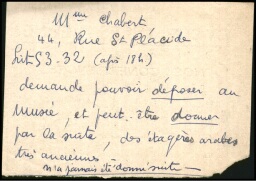 Mme Chabert
44, Rue St Placide
Lit 53-32 (après 18h)
demande pouvoir déposer au
Musée, et peut-être donner
par la suite, des étagères arabes
très anciennes
n'a jamais été donné suite